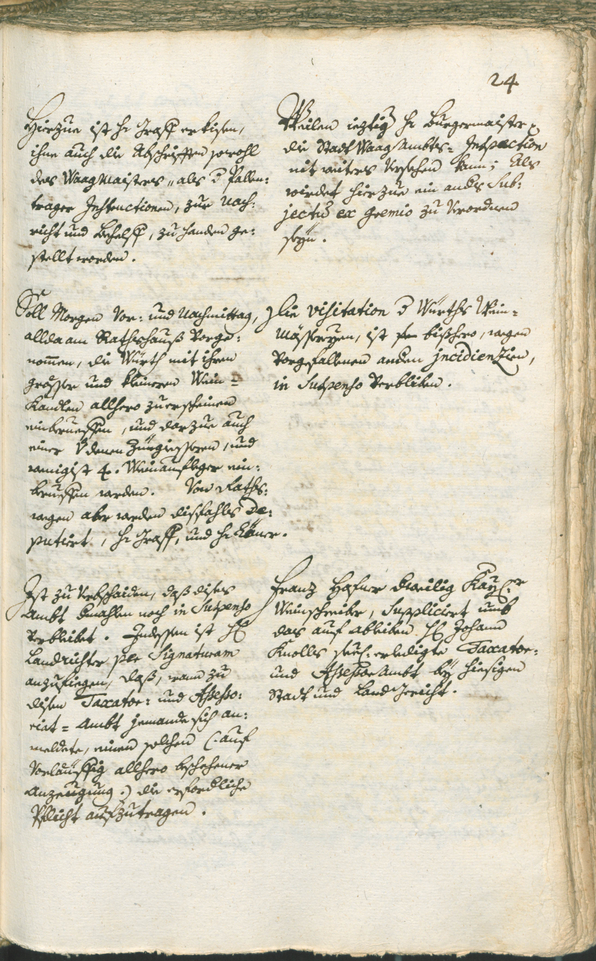 24
Hierzue ist H: Graff erkisen,
ihme auch die Abschrifften sowohl
des WaagMaisters, als d Fallen-
trager Instructionen, zur Nach-
richt und Behelff, zuhanden ge-
stellt worden.
Weilen ieztig H: Burgermaister
die StadtWaagAmbts-Inspection
nit weiters Versehen kann; Als
wirdet hierzue ein anders Sub-
jectu ex gremio zu Verordnen
seyn.
Soll Morgen Vor: und Nachmittag,
allda am Rathshauß Vorge-
nommen, die Würth mit ihren
große und kleinern Wein-
Kandlen allhero zuerscheinen
einberueffen, und darzue auch
einer V denen Zingiessern, und
wenigist 4. Weinaufleger ein-
beruffen werden. Von Raths-
wegen aber werden dißfahls De-
putirt, H: Graff, und H:
Die visitation d Würths Wein-
Mässereyen, ist bißhero, wegen
Vorgefallenen andern jncidentien,
in Suspenso Verbliben.
Ist zu Verbschaiden, daß dises
Ambt dermahlen noch in Suspenso
Verbleibet. Indessen ist H:
Landrichter per Signaturam
anzufiegen, daß, wann zu
disen Taxator: und Assesso-
riat-Ambt jemand sich an-
meldete, einen solchen (: auf
Vorläuffig allhero beschehener
Anzeugung :) die erforderliche
Pflicht aufzutragen.
Franz Hafner dermalig Kay:
Weinschreiber, Supplicirt umb
das auf ableiben H: Johann
Knolls seel: erledigte Taxator-
und AssessorAmbt bey hiesigen
Stadt und Landgericht.